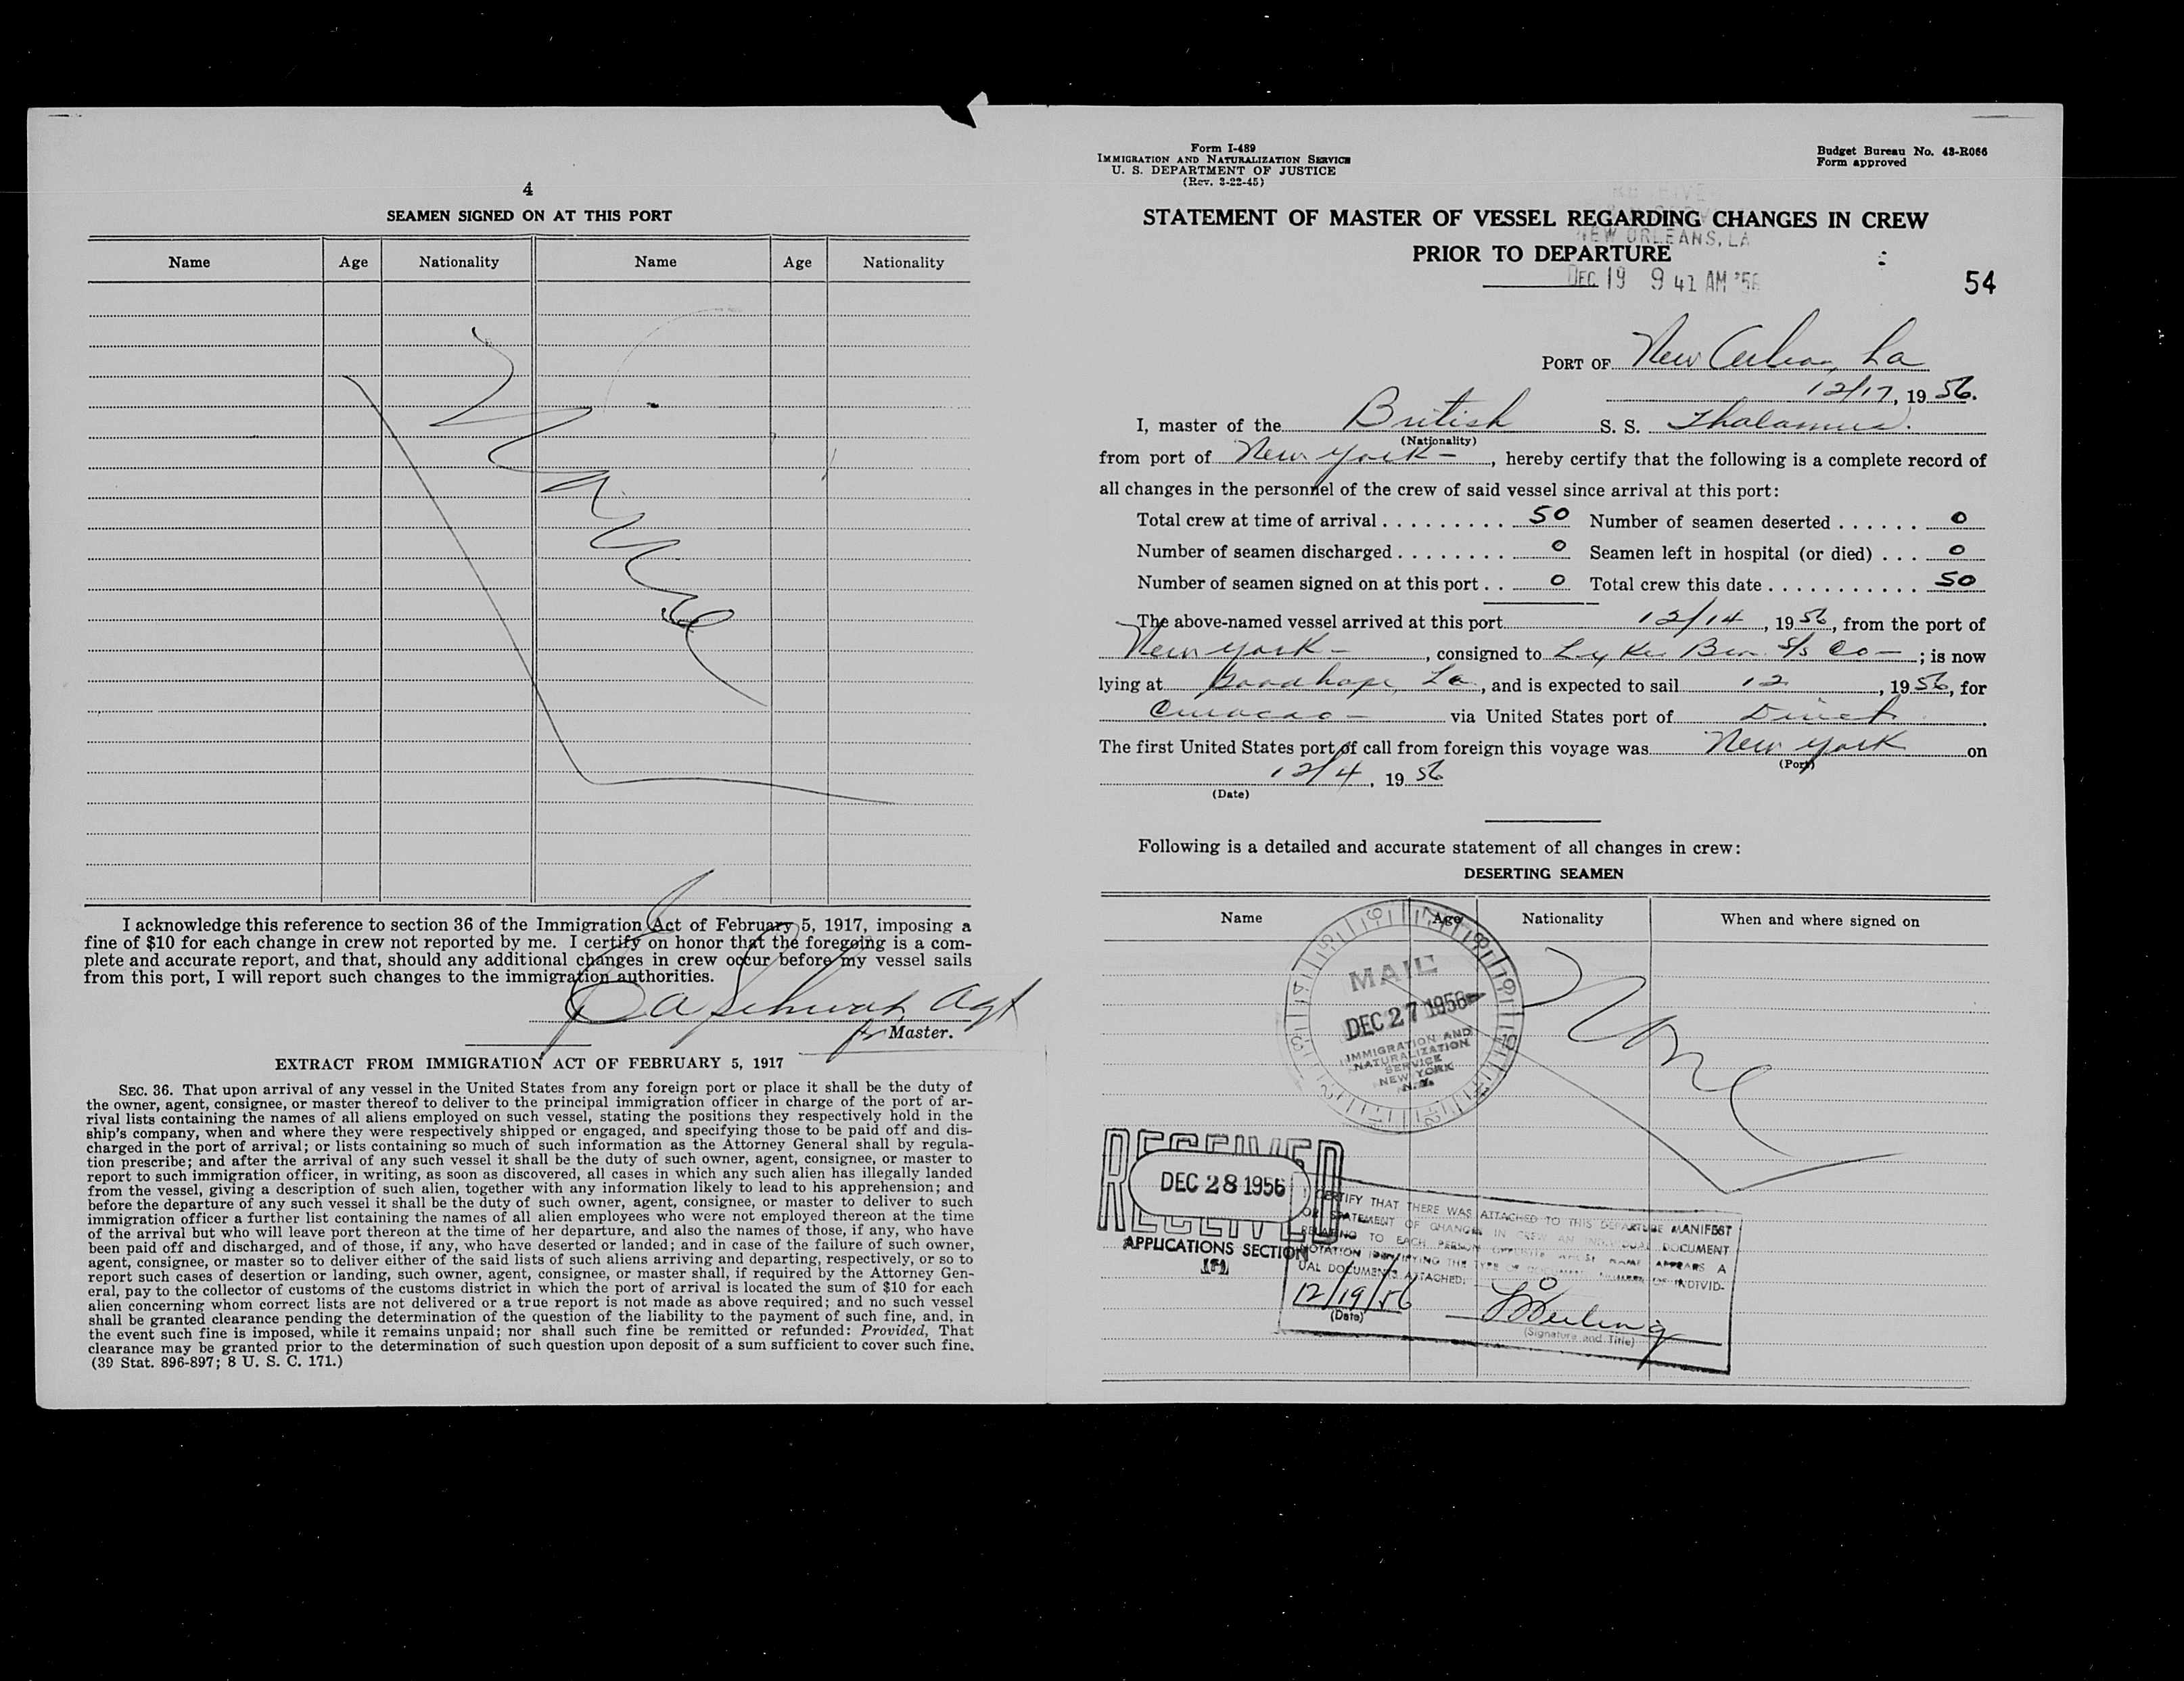 4
SEAMEN SIGNED ON AT THIS PORT
Name Age Nationality Name Age Nationality
None
I acknowledge this reference to section 36 of the Immigration Act of February 5, 1917, imposing a
fine of $10 for each change in crew not reported by me. I certify on honor that the foregoing is a com-
plete and accurate report, and that, should any additional changes in crew occur before my vessel sails
from this port, I will report such changes to the immigration authorities.
Agt
for Master.
EXTRACT FROM IMMIGRATION ACT OF FEBRUARY 5, 1917
SEC. 36. That upon arrival of any vessel in the United States from any foreign port or place it shall be the duty of
the owner, agent, consignee, or master thereof to deliver to the principal immigration officer in charge of the port of ar-
rival lists containing the names of all aliens employed on such vessel, stating the positions they respectively hold in the
ship's company, when and where they were respectively shipped or engaged, and specifying those to be paid off and dis-
charged in the port of arrival; or lists containing so much of such information as the Attorney General shall by regula-
tion prescribe; and after the arrival of any such vessel it shall be the duty of such owner, agent, consignee, or master to
report to such immigration officer, in writing, as soon as discovered, all cases in which any such alien has illegally landed
from the vessel, giving a description of such alien, together with any information likely to lead to his apprehension; and
before the departure of any such vessel it shall be the duty of such owner, agent, consignee, or master to deliver to such
immigration officer a further list containing the names of all alien employees who were not employed thereon at the time
of the arrival but who will leave port thereon at the time of her departure, and also the names of those, if any, who have
been paid off and discharged, and of those, if any, who have deserted or landed; and in case of the failure of such owner,
agent, consignee, or master so to deliver either of the said lists of such aliens arriving and departing, respectively, or so to
report such cases of desertion or landing, such owner, agent, consignee, or master shall, if required by the Attorney Gen-
eral, pay to the collector of customs of the customs district in which the port of arrival is located the sum of $10 for each
alien concerning whom correct lists are not delivered or a true report is not made as above required; and no such vessel
shall be granted clearance pending the determination of the question of the liability to the payment of such fine, and, in
the event such fine is imposed, while it remains unpaid; nor shall such fine be remitted or refunded: Provided, That
clearance may be granted prior to the determination of such question upon deposit of a sum sufficient to cover such fine.
(39 Stat. 896-897; 8 U. S. C. 171.)
Form I-489
IMMIGRATION AND NATURALIZATION SERVICE
U. S. DEPARTMENT OF JUSTICE
(Rev. 3-22-45)
Budget Bureau No. 43-R066
Form approved
STATEMENT OF MASTER OF VESSEL REGARDING CHANGES IN CREW
NEW ORLEANS, LA
PRIOR TO DEPARTURE
DEC 19 9 41 AM '56
54
PORT OF New Orleans, La
12/17, 1956.
I, master of the British S. S. Thalamus.
(Nationality)
from port of New York -, hereby certify that the following is a complete record of
all changes in the personnel of the crew of said vessel since arrival at this port:
Total crew at time of arrival . . . . . . . . . 50 Number of seamen deserted . . . . . . 0
Number of seamen discharged . . . . . . . . 0 Seamen left in hospital (or died) . . . 0
Number of seamen signed on at this port . . 0 Total crew this date . . . . . . . . . . . 50
The above-named vessel arrived at this port 12/14, 1956, from the port of
New York -, consigned to Lykes Bros. S/S Co -; is now
lying at Goodhope, La, and is expected to sail 12, 1956, for
Curacao - via United States port of Direct.
The first United States port of call from foreign this voyage was New York on
(Port)
12/4, 1956
(Date)
Following is a detailed and accurate statement of all changes in crew:
DESERTING SEAMEN
Name Age Nationality When and where signed on
None
MAIL
DEC 27 1956
IMMIGRATION AND
NATURALIZATION
SERVICE
NEW YORK
N.Y.
RECEIVED
DEC 28 1956
RECEIVED
APPLICATIONS SECTION
I CERTIFY THAT THERE WAS ATTACHED TO THIS DEPARTURE MANIFEST
OR STATEMENT OF CHANGES IN CREW AN INDIVIDUAL DOCUMENT
RELATING TO EACH PERSON OPPOSITE WHOSE NAME APPEARS A
NOTATION IDENTIFYING THE TYPE OF DOCUMENT. NUMBER OF INDIVID-
UAL DOCUMENTS ATTACHED: 0
12/19/56
(Date)
(Signature and Title)